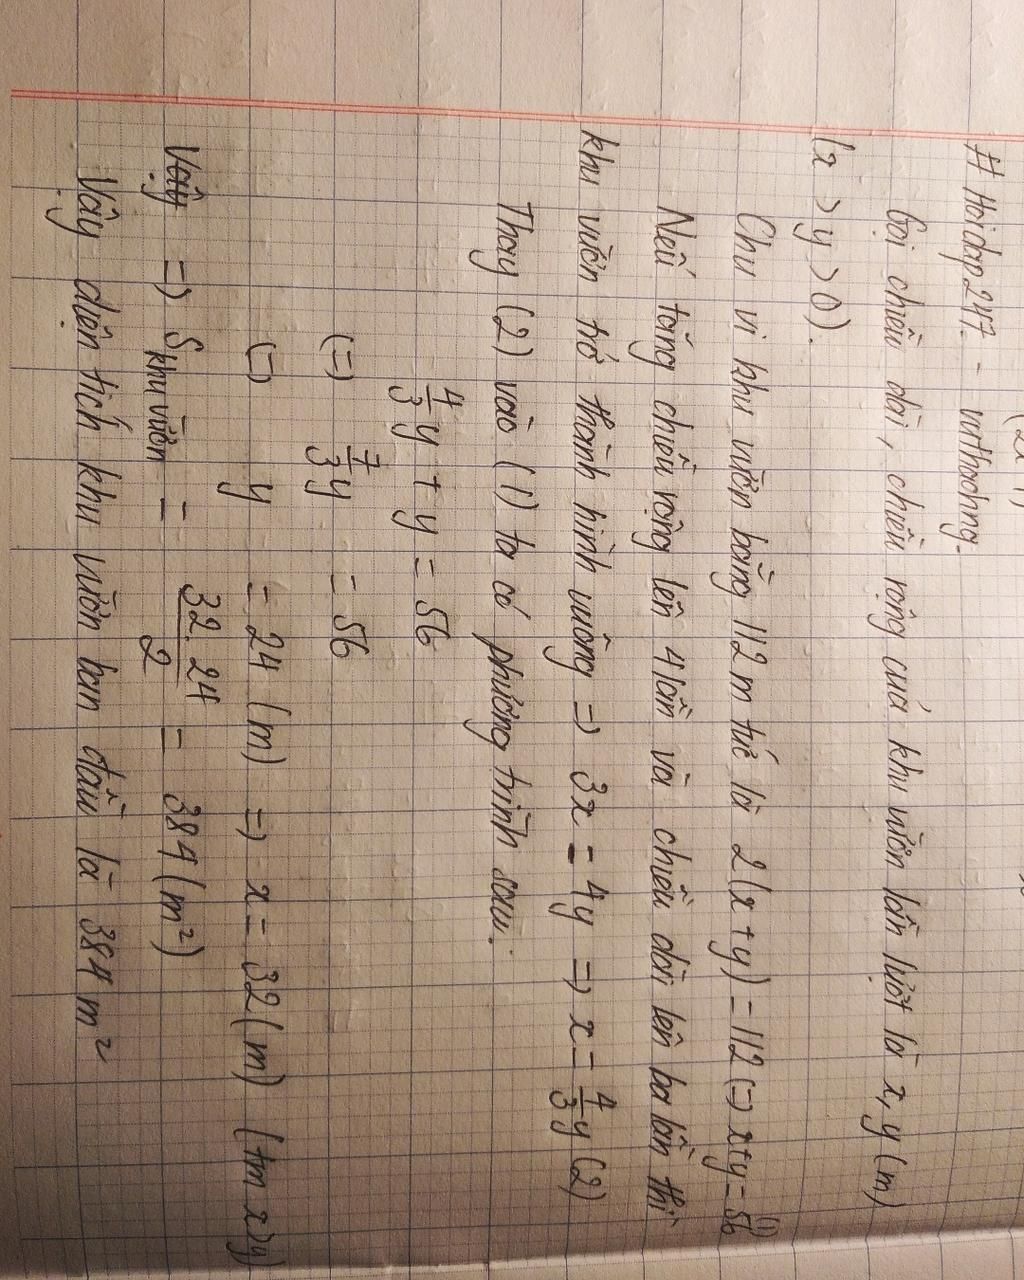 # Hoidap247 -
Gọi chiều dài, chiều rộng của khu vườn lần lượt là x, y (m)
(x > y > 0).
Chu vi khu vườn bằng 112 m tức là 2(x + y) = 112 (=) x+y = 56 (1)
Nếu tăng chiều rộng lên 4 lần và chiều dài lên ba lần thì
khu vườn trở thành hình vuông => 3x = 4y => x = 4/3 y (2)
Thay (2) vào (1) ta có phương trình sau:
4/3 y + y = 56
(=) 7/3 y = 56
(=) y = 24 (m) => x = 32 (m) (tm x>y)
Vậy => S khu vườn = 32.24/2 = 384 (m²)
Vậy diện tích khu vườn ban đầu là 384 m²